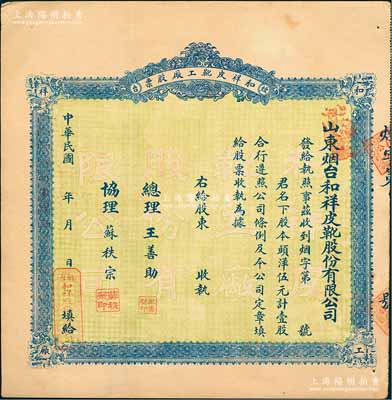 上海陽明拍賣
和祥皮靴工廠股票
和
祥
工
廠
山東烟台和祥皮靴股份有限公司
發給執照事茲收到烟字第 號
君名下股本頭洋伍元計壹股
合行遵照公司條例及本公司定章填
給股票收執為據
右給股東 收執
總理 王善助
協理 蘇秩宗
中華民國 年 月 日 填給
上海陽明拍賣